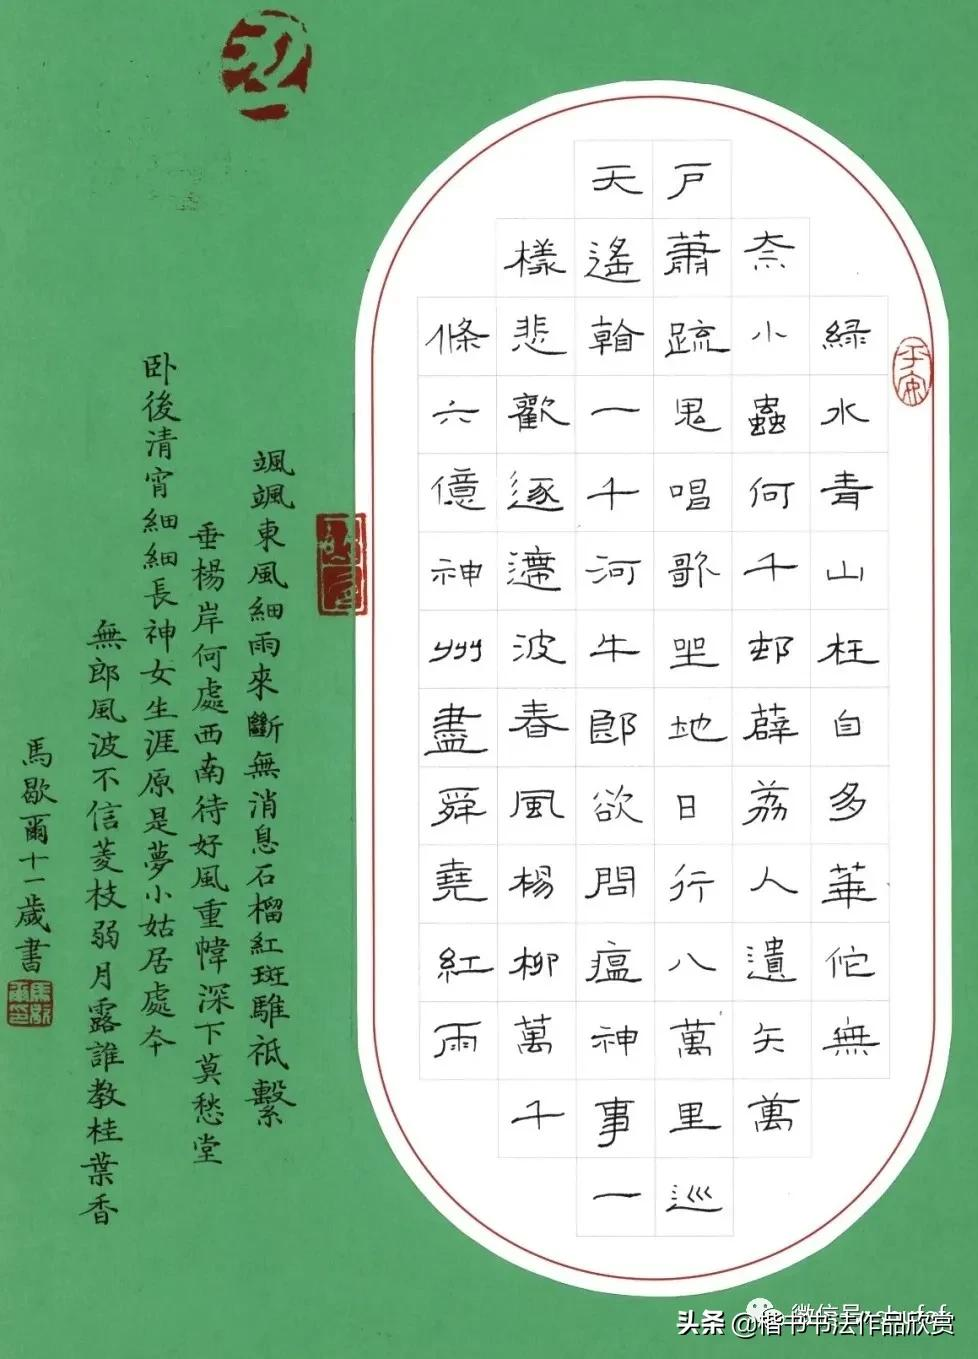 緑水青山枉自多華佗無
奈小蟲何千邨薜荔人遺矢萬
戸蕭疏鬼唱歌坐地日行八萬里巡
天遙看一千河牛郎欲問瘟神事一
樣悲歡逐逝波春風楊柳萬千
條六億神州盡舜堯紅雨
平安
颯颯東風細雨來斷無消息石榴紅斑騅祗繫
垂楊岸何處西南待好風重幃深下莫愁堂
卧後清宵細細長神女生涯原是夢小姑居處本
無郎風波不信菱枝弱月露誰教桂葉香
馬歇爾十一歲書
微信号
头条 @楷书书法作品欣赏